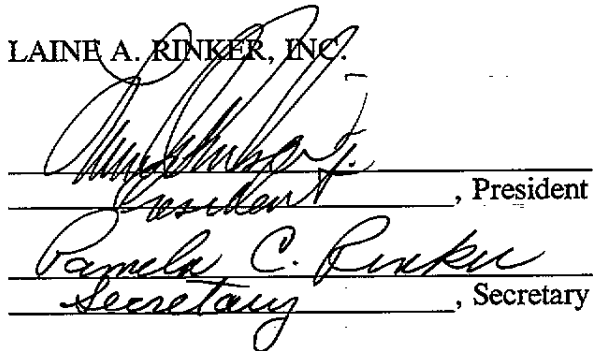 LAINE A. RINKER, INC.
President
, President
Pamela C. Rinker
Secretary
, Secretary